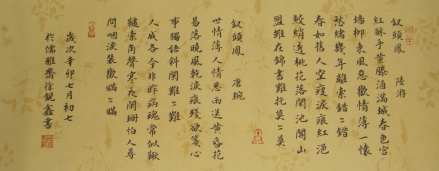 釵頭鳳 陸游
紅酥手黃縢酒滿城春色宮
墻柳東風惡歡情薄一懷
愁緒幾年離索錯〻錯
春如舊人空瘦淚痕紅浥
鮫綃透桃花落閑池閣山
盟雖在錦書難托莫〻莫
釵頭鳳 唐琬
世情薄人情惡雨送黃昏花
易落曉風乾淚痕殘欲箋心
事獨語斜闌難〻難
人成各今非昨病魂常似鞦
韆索角聲寒夜闌珊怕人尋
問咽淚裝歡瞞〻瞞
歲次辛卯七月初七
於儒雅齋徐銳鑫書